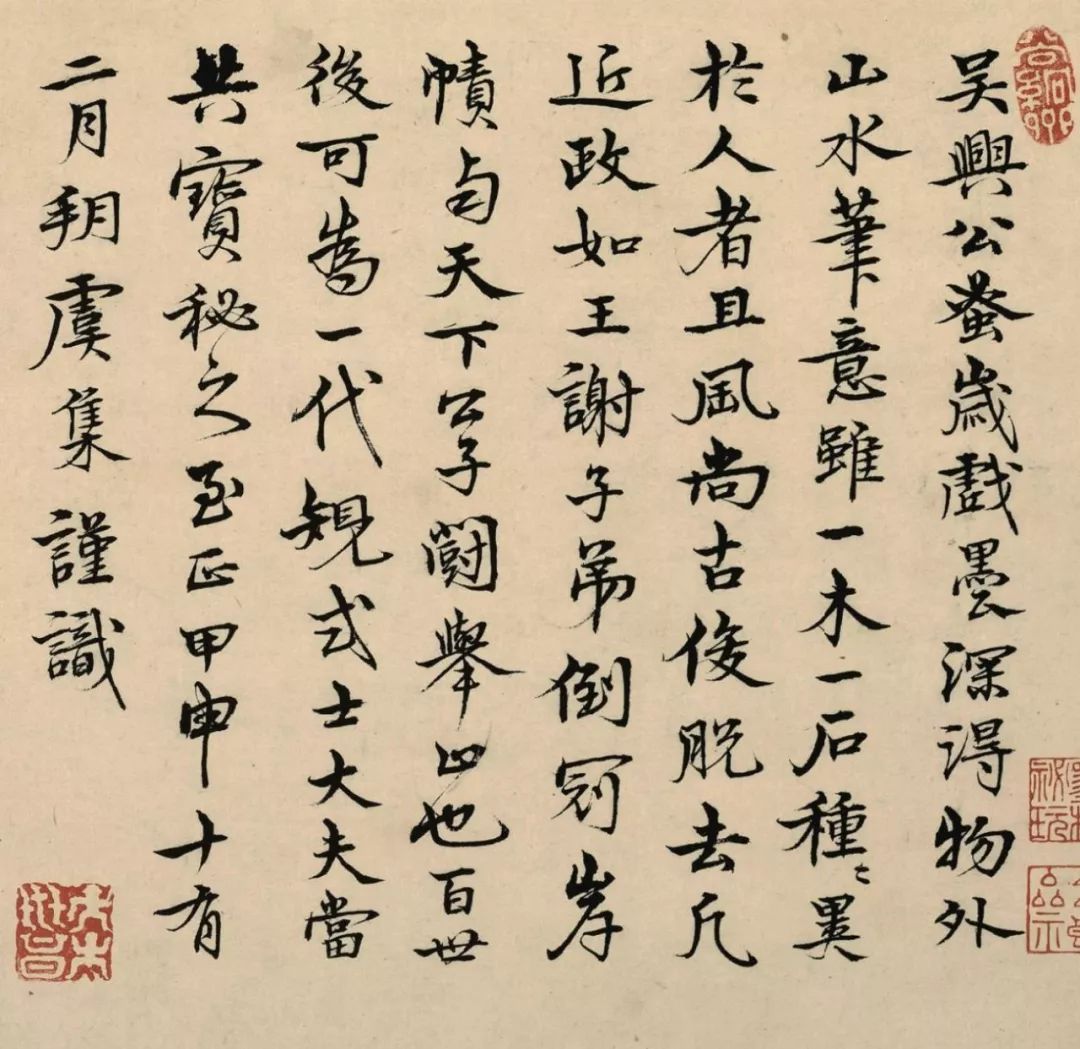 吴興公蚤歲戲墨深得物外
山水筆意雖一木一石種〻異
於人者且風尚古俊脱去凡
近政如王謝子弟倒冠岸
幘与天下公子鬪舉止也百世
後可為一代規式士大夫當
共寶秘之至正甲申十有
二月朔虞集謹識